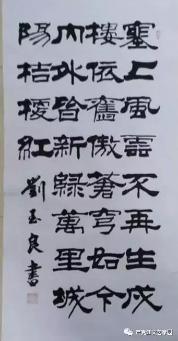 塞上風雲不再生戍
樓依舊傲蒼穹如今
內外皆新綠萬里城
陽桔梗紅
劉玉良書